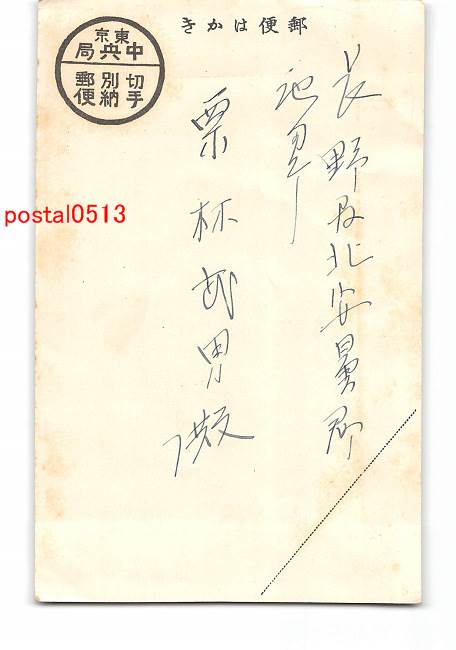 郵便はかき
東京
中央局
切手
別納
郵便
長野県北安曇郡
池田
栗林武男殿
postal0513